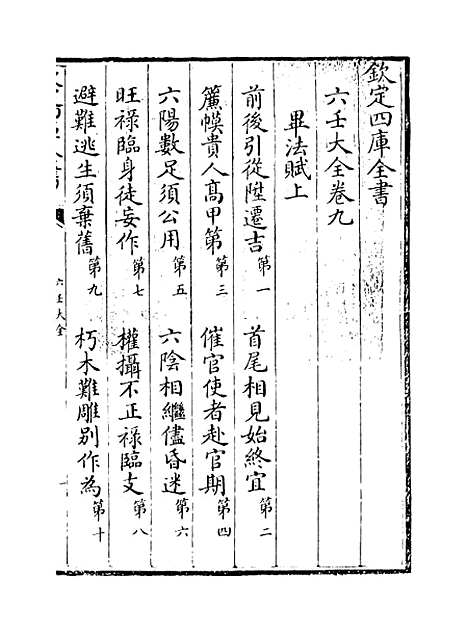 欽定四庫全書
六壬大全卷九
畢法賦上
前後引從陞遷吉第一　首尾相見始終宜第二
簾幙貴人髙甲第第三　催官使者赴官期第四
六陽數足須公用第五　六隂相繼儘昏迷第六
旺禄臨身徒妄作第七　權攝不正禄臨支第八
避難逃生須棄舊第九　朽木難雕别作為第十
六壬大全